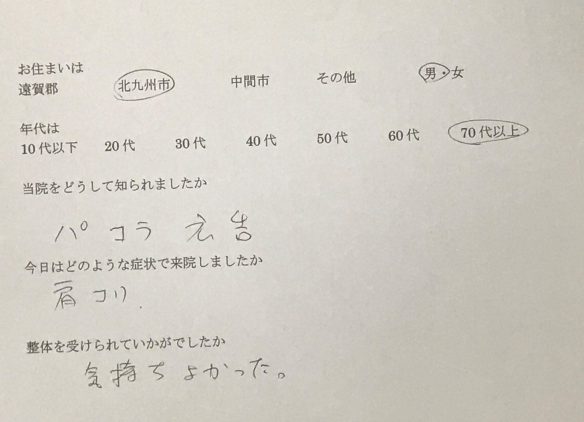 お住まいは
遠賀郡 北九州市 中間市 その他 男・女
年代は
10代以下 20代 30代 40代 50代 60代 70代以上
当院をどうして知られましたか
パコラ 広告
今日はどのような症状で来院しましたか
肩コリ.
整体を受けられていかがでしたか
気持ちよかった。